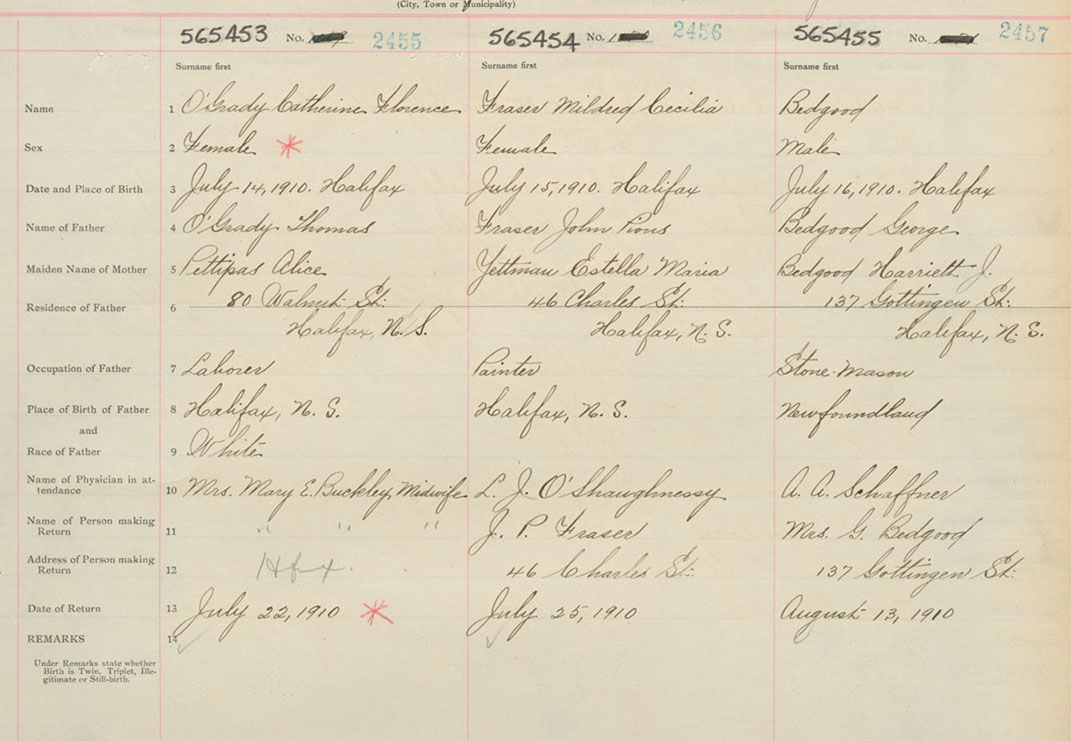 (City, Town or Municipality)
565453 No. 2455 565454 No. 2456 565455 No. 2457
Surname first Surname first Surname first
Name 1 O'Grady Catherine Florence Fraser Mildred Cecilia Bedgood
Sex 2 Female Female Male
Date and Place of Birth 3 July 14, 1910. Halifax July 15, 1910. Halifax July 16, 1910. Halifax
Name of Father 4 O'Grady Thomas Fraser John Pious Bedgood George
Maiden Name of Mother 5 Pettipas Alice Yettman Estella Maria Bedgood Harriett J.
Residence of Father 6 80 Walnut St. 46 Charles St. 137 Gottingen St.
Halifax, N.S. Halifax, N.S. Halifax, N.S.
Occupation of Father 7 Laborer Painter Stone-Mason
Place of Birth of Father 8 Halifax, N.S. Halifax, N.S. Newfoundland
and
Race of Father 9 White
Name of Physician in at-
tendance 10 Mrs. Mary E. Buckley, Midwife L. J. O'Shaughnessy A. A. Schaffner
Name of Person making
Return 11 " " " J. P. Fraser Mrs. G. Bedgood
Address of Person making
Return 12 Hfx. 46 Charles St. 137 Gottingen St.
Date of Return 13 July 22, 1910 July 25, 1910 August 13, 1910
REMARKS 14
Under Remarks state whether
Birth is Twin, Triplet, Ille-
gitimate or Still-birth.